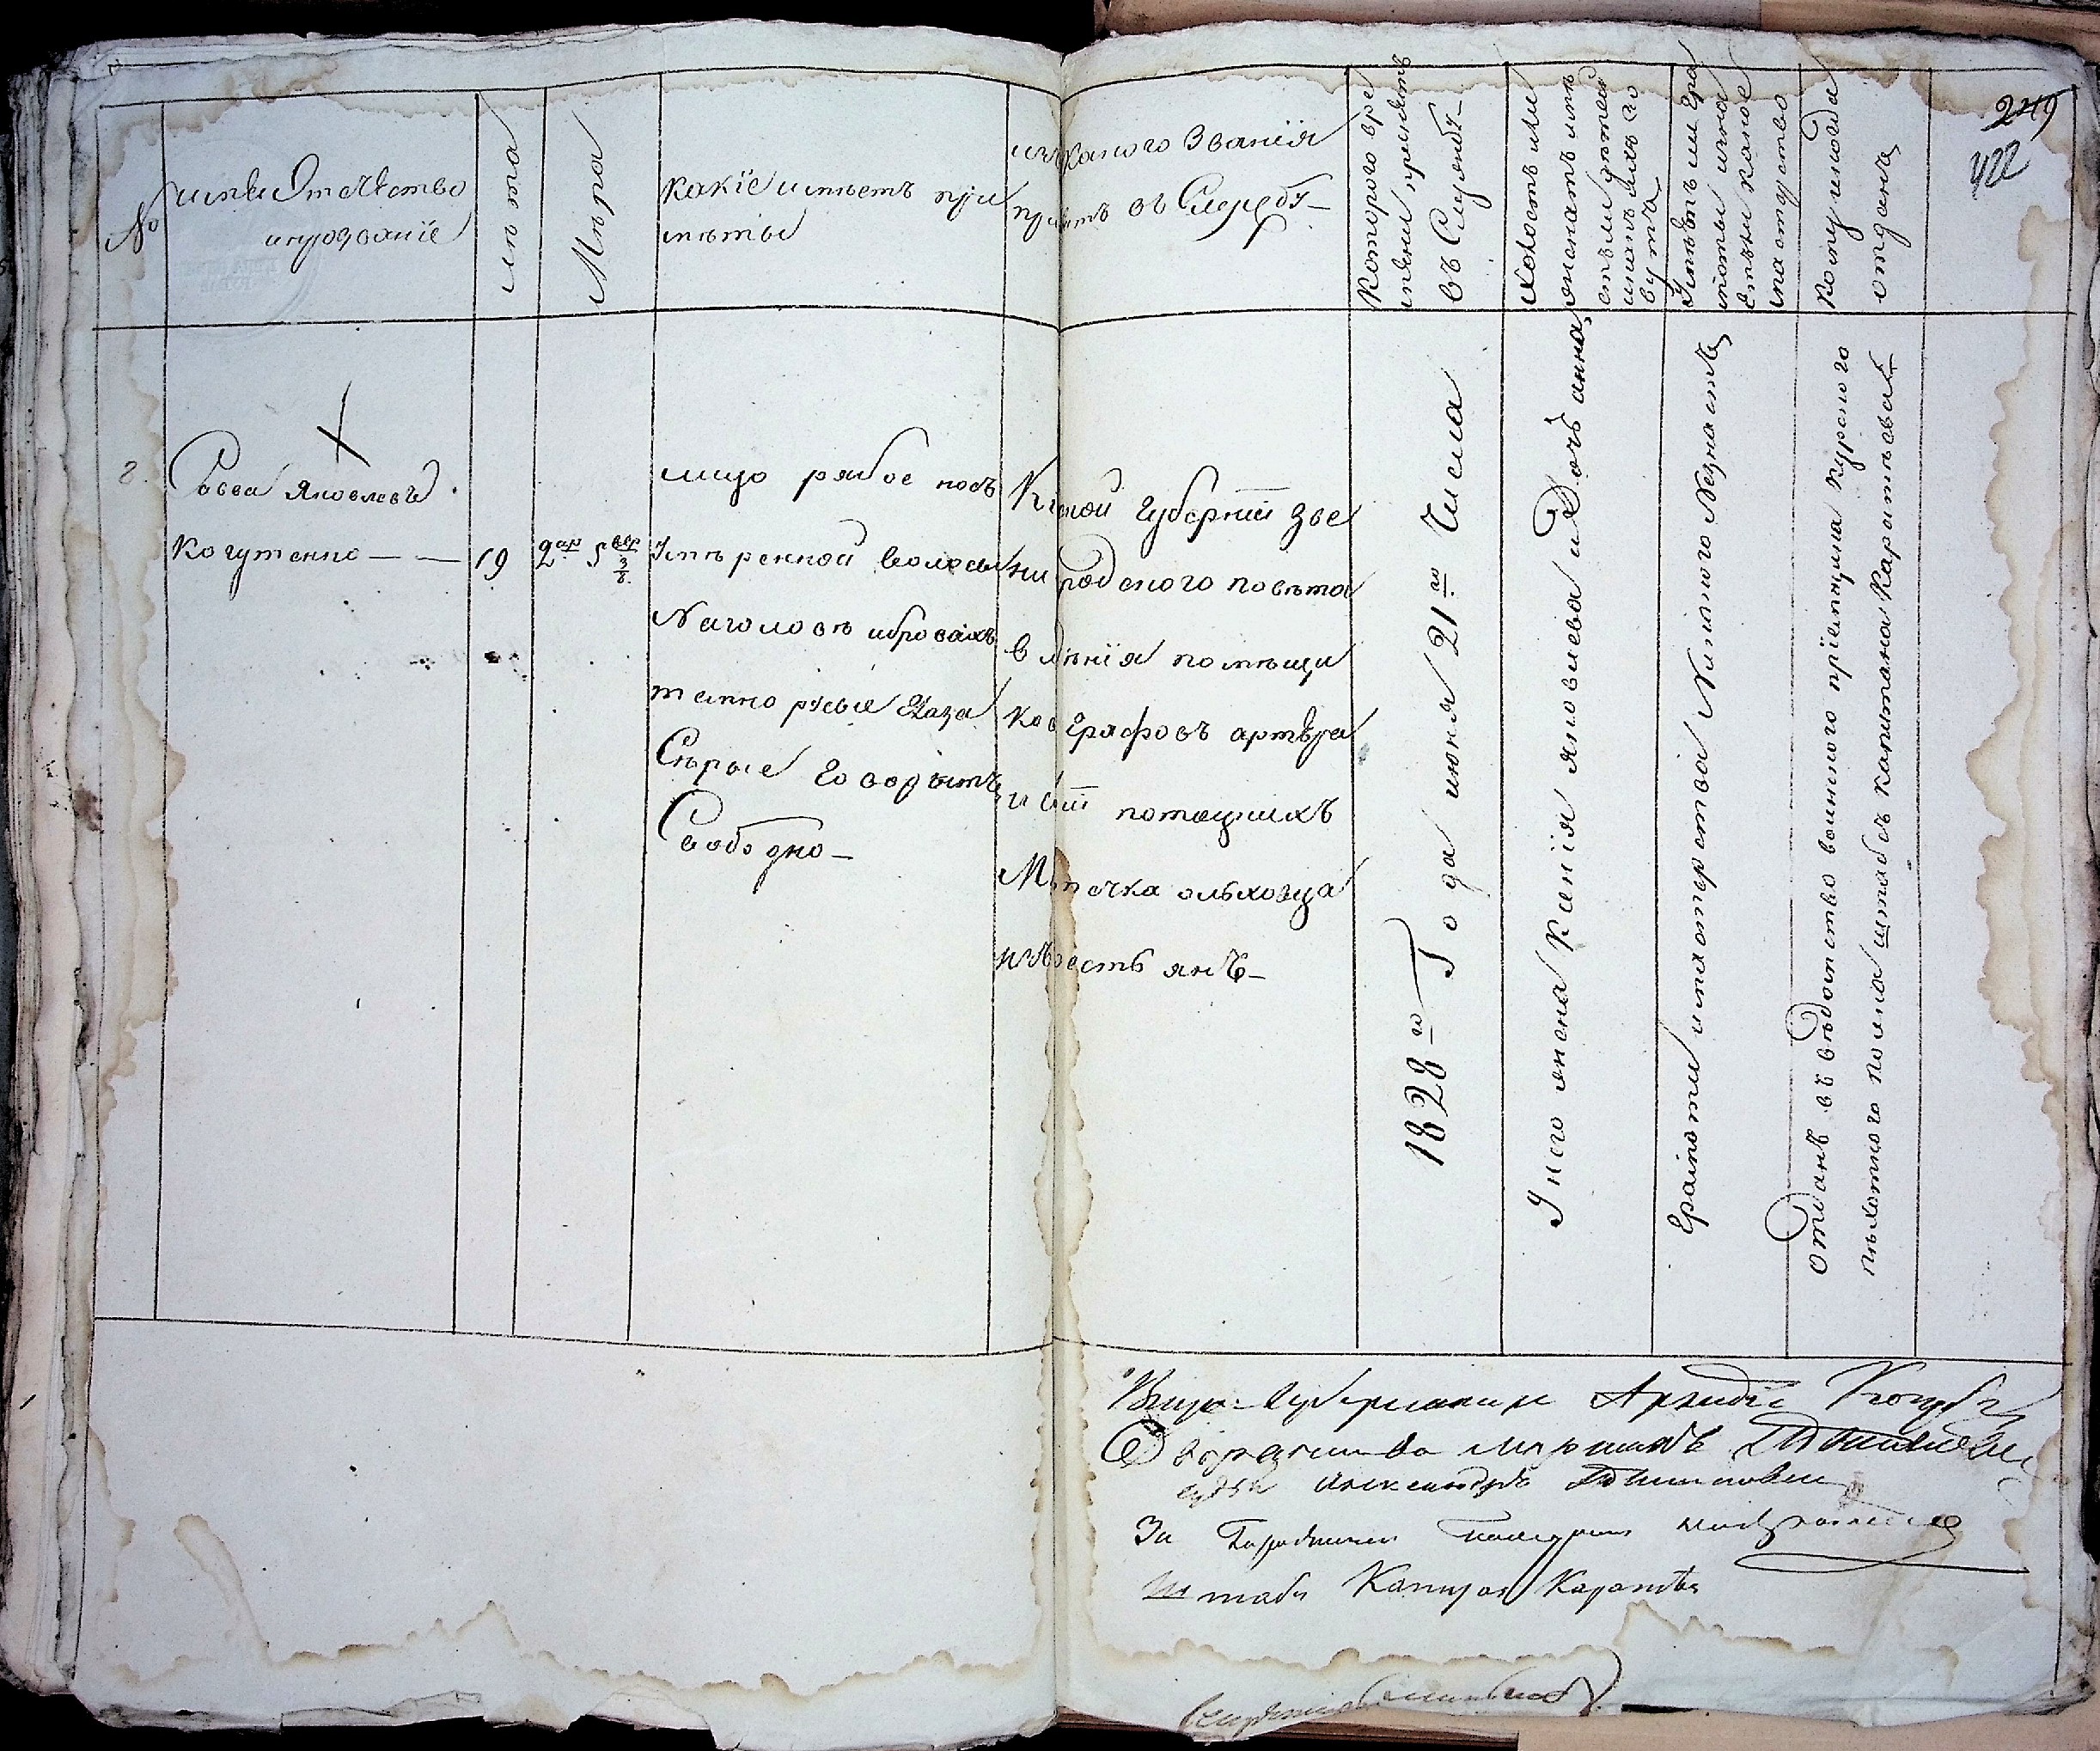 249
422
№
имя Отчѣство
ипрозванiе
лѣта
Мѣра
Какiе имѣетъ при
мѣты
изъ какого Званiя
принятъ въ Службу
Которого вре
мѣни принятъ
въ Службу
Холостъ или
женатъ имѣ
етъ ли детей
Умѣетъ ли гра
моты и нѣтъ
ли какое
мастерство
Кому и когда
отданъ
8.
Савва Яковлевъ
Когутенко — —
19
2 ар 5 вер 3/8.
лицо рябое носъ
Умѣренной волосы
На головѣ ибровахъ
темно русые Глаза
Сѣрые Говоритъ
Свободно —
Кiевской Губернiи Зве
нигородского повѣта
владѣнiя помѣщи
ковъ Графовъ артура
и потоцкихъ
Мѣстечка ольховца
изъ крестьянъ —
1828го Года июня 21го Числа
У него жена Ксенiя яковлева и Дочь анна
Грамоти имастерства Никакого Незнаетъ
Отданъ въ вѣдомство воинского прiемщика Курского
пѣхотного полка штабсъ капитана Каратѣева
Вице-Губернаторъ Аркадiй Кочубей
Дворянства маршалъ
судья Александръ
За Городничого
Штабс Капитан Каратѣев